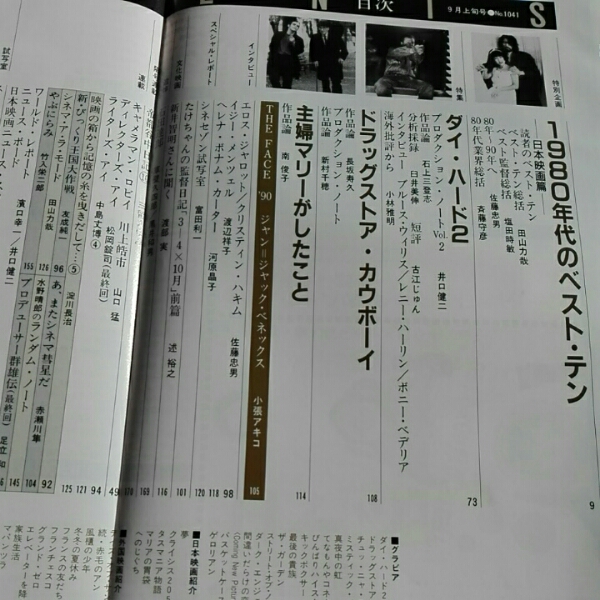 目次
9月上旬号 No.1041
特別企画
1980年代のベスト・テン
日本映画篇
読者のベスト・テン 田山力哉
ベスト・テン総括 塩田時敏
ベスト監督総括 佐藤忠男
80年〜90年
80年代業界総括 斉藤守彦
9
73
特集
ダイ・ハード2
プロダクション・ノートVol.2 井口健二
作品論 石上三登志
分析採録 臼井美伸 短評 古江じゅん
インタビュー ブルース・ウィリス/レニー・ハーリン/ボニー・ベデリア
海外批評から 小林雅明
108
ドラッグストア・カウボーイ
作品論 長坂寿久
プロダクション・ノート
作品論 新村千穂
114
主婦マリーがしたこと
作品論 南俊子
THE FACE '90 ジャン=ジャック・ベネックス 小張アキコ
105
インタビュー
エロス・ジャロット/クリスティン・ハキム 佐藤忠男
98
イジー・メンツェル 渡辺祥子
118
ヘレナ・ボナム・カーター 河原晶子
120
シネセゾン試写室 富田利一
101
スペシャル・レポート
たけちゃんの監督日記「3-4×10月」前篇
述 裕之
116
文化映画
新井智明さんに聞く 渡部実
連載
キャメラマン・ロビイ 川上皓市
ディレクターズ・アイ 山口猛
ライターズ・アイ 松岡錠司(最終回)
49
映画の箱から記憶の糸を曳きだして… 中島丈博④
94
新・びっくり王国大作戦⑤ 淀川長治
121
シネマ・ア・ラ・モード 友成純一
125
やぶにらみ 田山力哉
96
竹入栄二郎
126
あ、またシネマ彗星だ 赤瀬川隼
92
水野晴郎のランダム・ノート
104
プロデューサー群雄伝(最終回)
145
ワールド・レポート
155
ニュース・ボード
日本映画ニュース・ス
濱口幸一/井口健二
試写室
■グラビア
ダイ・ハード2
ドラッグストア・カウボーイ
チュッ・ニャ・
ミスティック・
真夜中の虹
てなもんやコネ
びんばりハイス
キックボクサー
最後の貴族
ザ・ガーデン
ストリート・オブ・ノ
ダーク・エンジ
間違いだらけの恋
(Coming New Poster)
バスケットケー
ゲロリアン
■日本映画紹介
夢
クライシス205
タスマニア物語
マリアの胃袋
へのじぐち
■外国映画紹介
続・赤毛のアン
風櫃の少年
冬冬の夏休み
フランスの友だち
フランチェスコ
グランド・ゼロ
エレベーターを降
家族生活